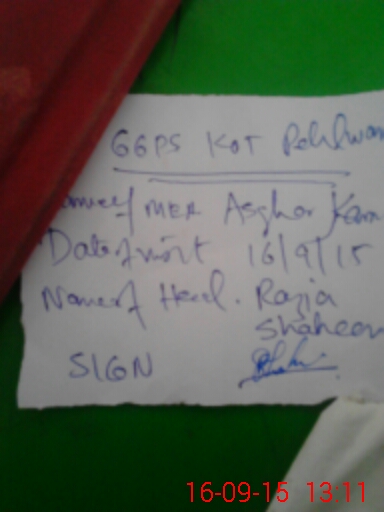 GGPS KOT Pehlwan
Name of MEA Asghar Karam
Date of visit 16/9/15
Name of Head. Razia
Shaheen
SIGN
16-09-15 13:11